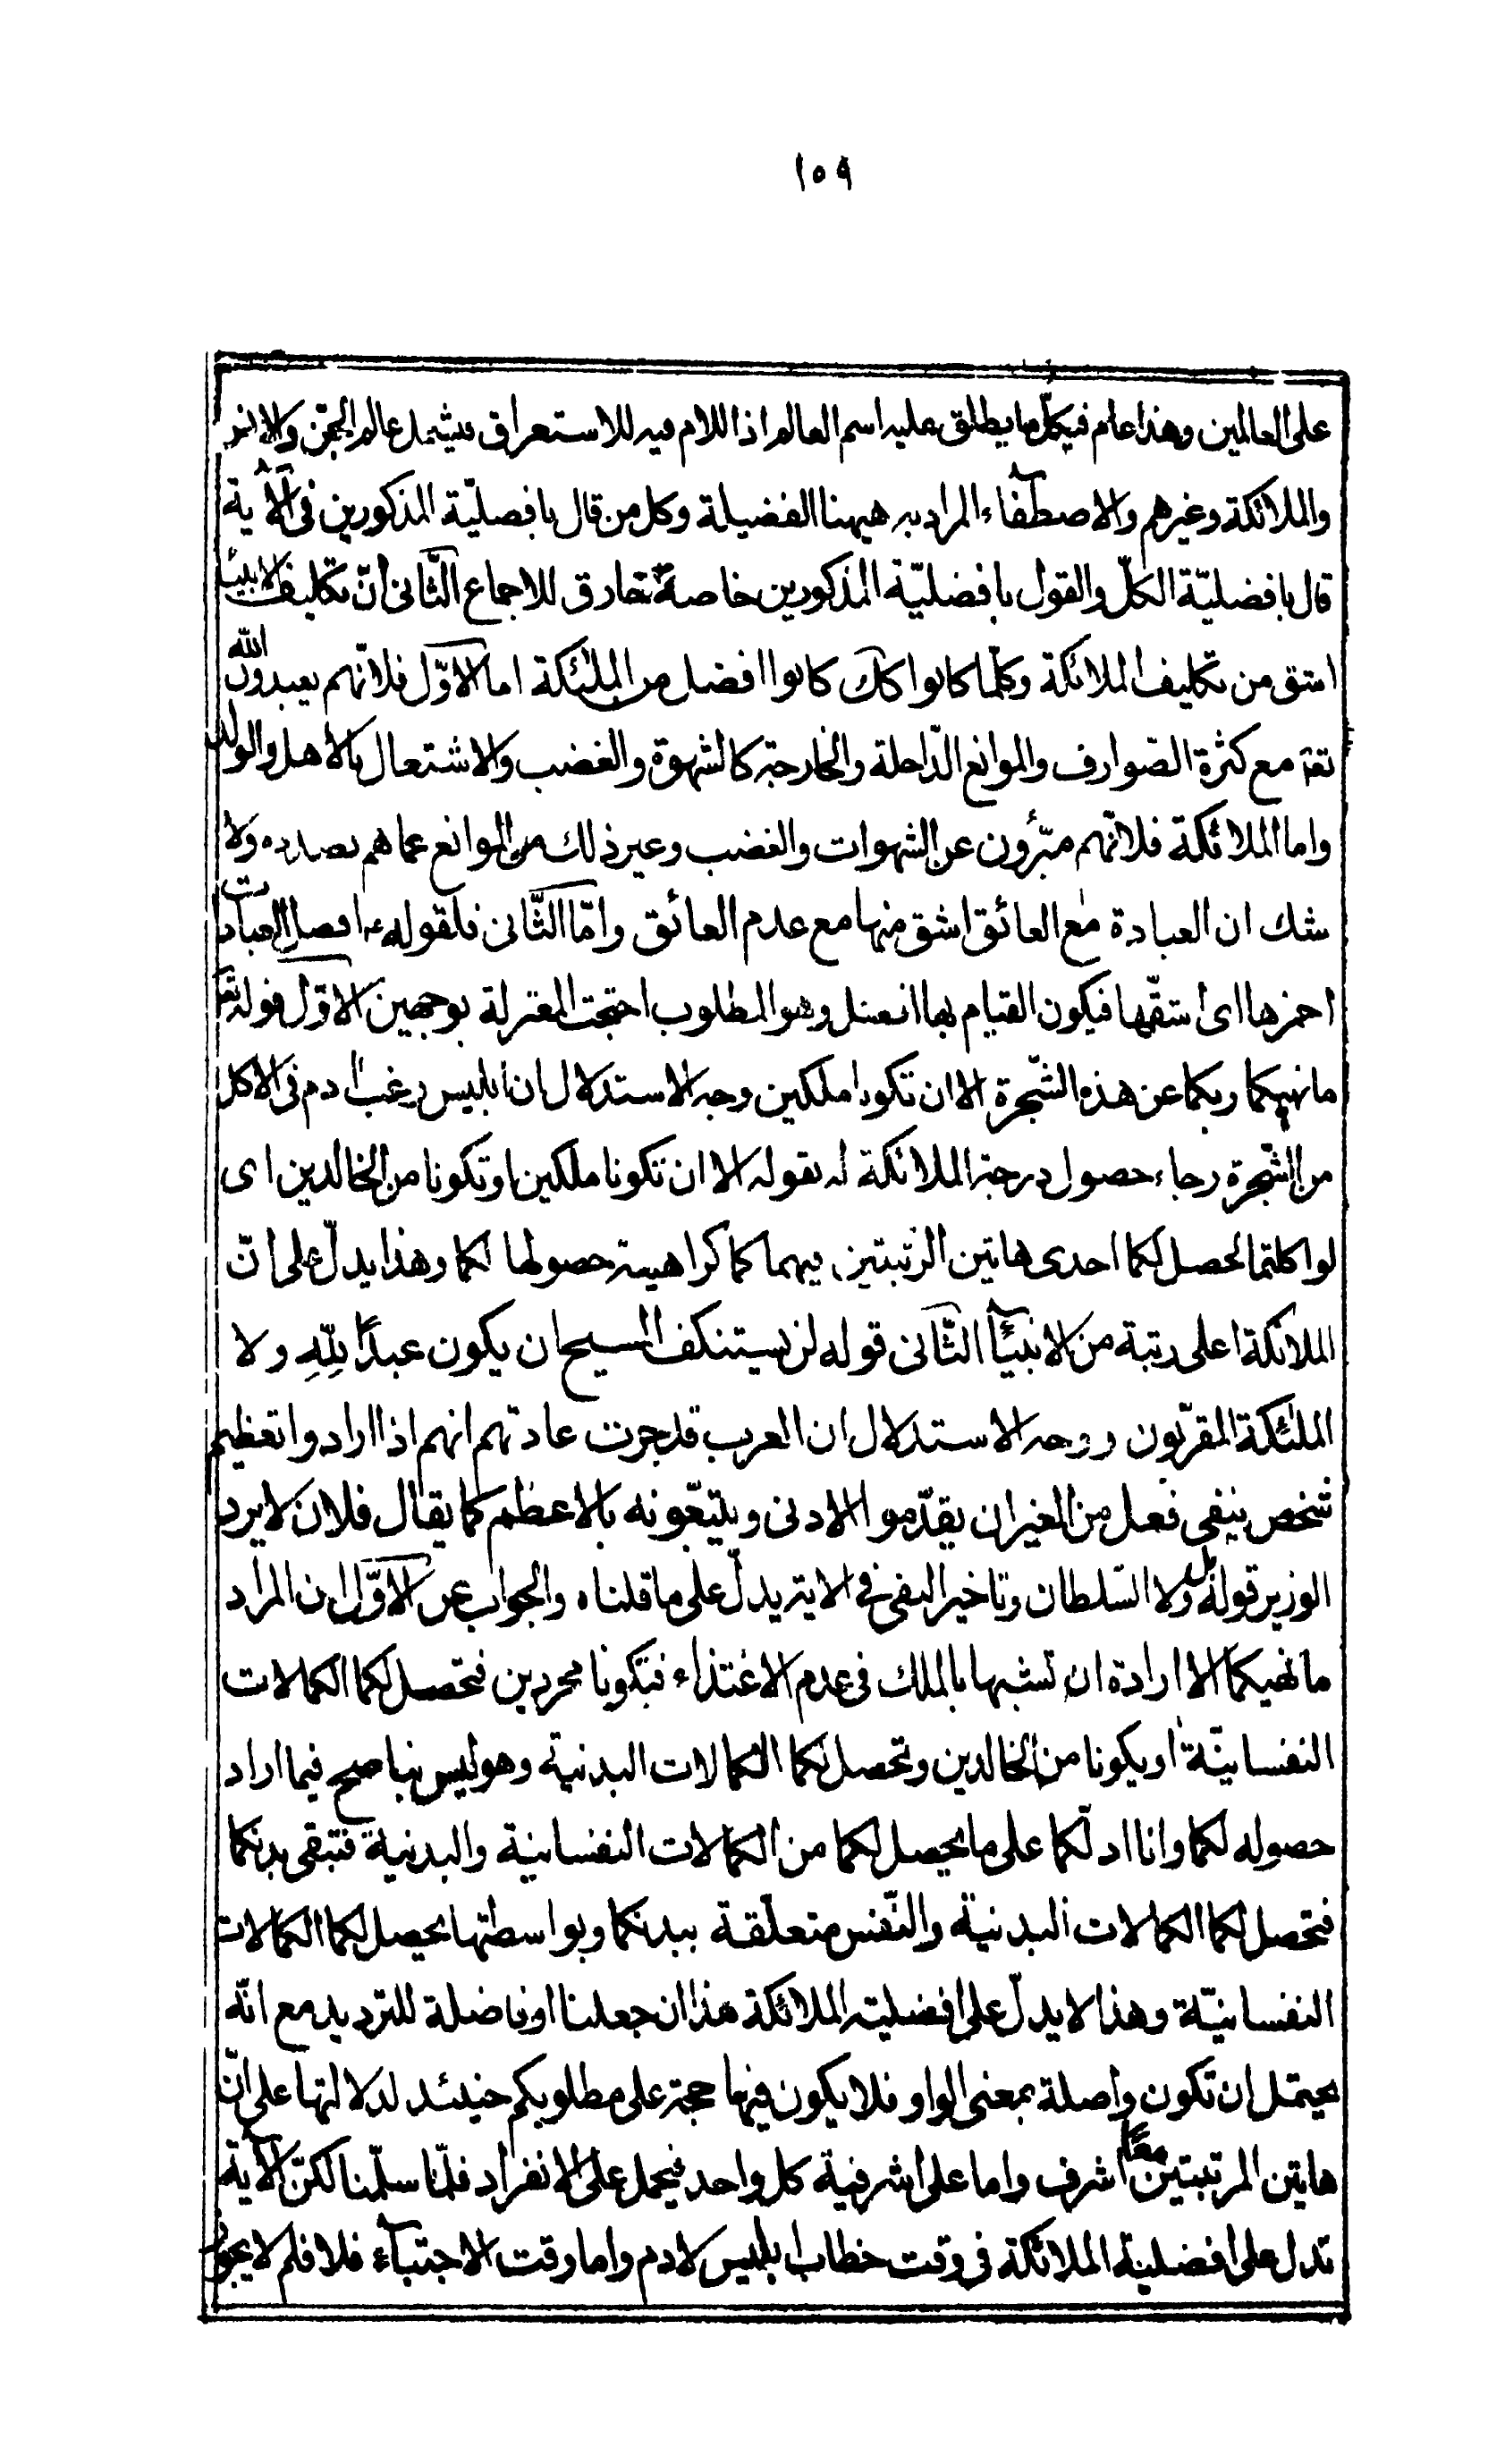 ١٥٩
على العالمين وهذا عام في كلّ ما يطلق عليه اسم العالم اذ اللام فيه للاستعراق فيشمل عالم الجنّ والانس
والملائكة وغيرهم والاصطفاء المراد به هيهنا الفضيلة وكل من قال بافضليّة المذكورين فى الآية
قال بافضليّة الكلّ والقول بافضليّة المذكورين خاصة خارق للاجماع الثّانى انّ تكاليف الانبياء
اشق من تكاليف الملائكة وكلّما كانوا كك كانوا افضل من الملئكة اما الاوّل فلانّهم يعبدون الله
تعّ مع كثرة الصّوارف والموانع الدّاخلة والخارجة كالشهوة والغضب والاشتغال بالاهل والولد
واما الملائكة فلانّهم مبرّؤن عن الشهوات والغضب وغير ذلك من الموانع عما هم بصدده ولا
شك ان العبادة مع العائق اشق منها مع عدم العائق وامّا الثّانى فلقوله ع افضل العبادات
احمزها اى اشقّها فيكون القيام بها افضل وهو المطلوب احتجت المعتزلة بوجهين الاوّل قوله تعّ
ما نهيكما ربكما عن هذه الشّجرة الا ان تكونا ملكين وجه الاستدلال ان ابليس رغب ادم فى الاكل
من الشّجرة رجاء حصول درجة الملائكة له بقوله الا ان تكونا ملكين او تكونا من الخالدين اى
لو اكلتما لحصل لكما احدى هاتين الرتبتين فيهما كما كراهية حصولها لكما وهذا يدلّ على انّ
الملائكة اعلى رتبة من الانبياء الثّانى قوله لن يستنكف المسيح ان يكون عبدًا لِلّٰهِ ولا
الملئكة المقرّبون ووجه الاستدلال ان العرب قد جرت عادتهم انهم اذا ارادوا تعظيم
شخص بنفى فعل من الغير ان يقدّموا الادنى ويتبّعونه بالاعظم كما يقال فلان لا يرد
الوزير قوله ولا السّلطان وتاخير النفى فى الاية يدلّ على ما قلناه والجواب عن الاوّل ان المراد
ما نهيكما الا ارادة ان تشبها بالملك فى عدم الاغتذاء فتكونا مجردين فتحصل لكما الكمالات
النفسانيّة او يكونا من الخالدين وتحصل لكما الكمالات البدنية وهو ليس بناصح فيما اراد
حصوله لكما وانا ادلّكما على ما يحصل لكما من الكمالات النفسانية والبدنية فتبقى بدنكما
فتحصل لكما الكمالات البدنية والنّفس متعلّقة ببدنكما وبواسطتها يحصل لكما الكمالات
النفسانيّة وهذا لا يدلّ على افضلية الملائكة هذا ان جعلنا او فاضلة للترديد مع انّه
يحتمل ان تكون واصلة بمعنى الواو فلا يكون فيها حجة على مطلوبكم حينئذ لدلالتها على انّ
هاتين المرتبتين معًا اشرف واما على اشرفية كل واحد فيحمل على الانفراد فلا سلّمنا لكنّ الآية
تدل على افضلية الملائكة فى وقت خطاب ابليس لادم واما وقت الاجتباء فلا فلم لا يجوز